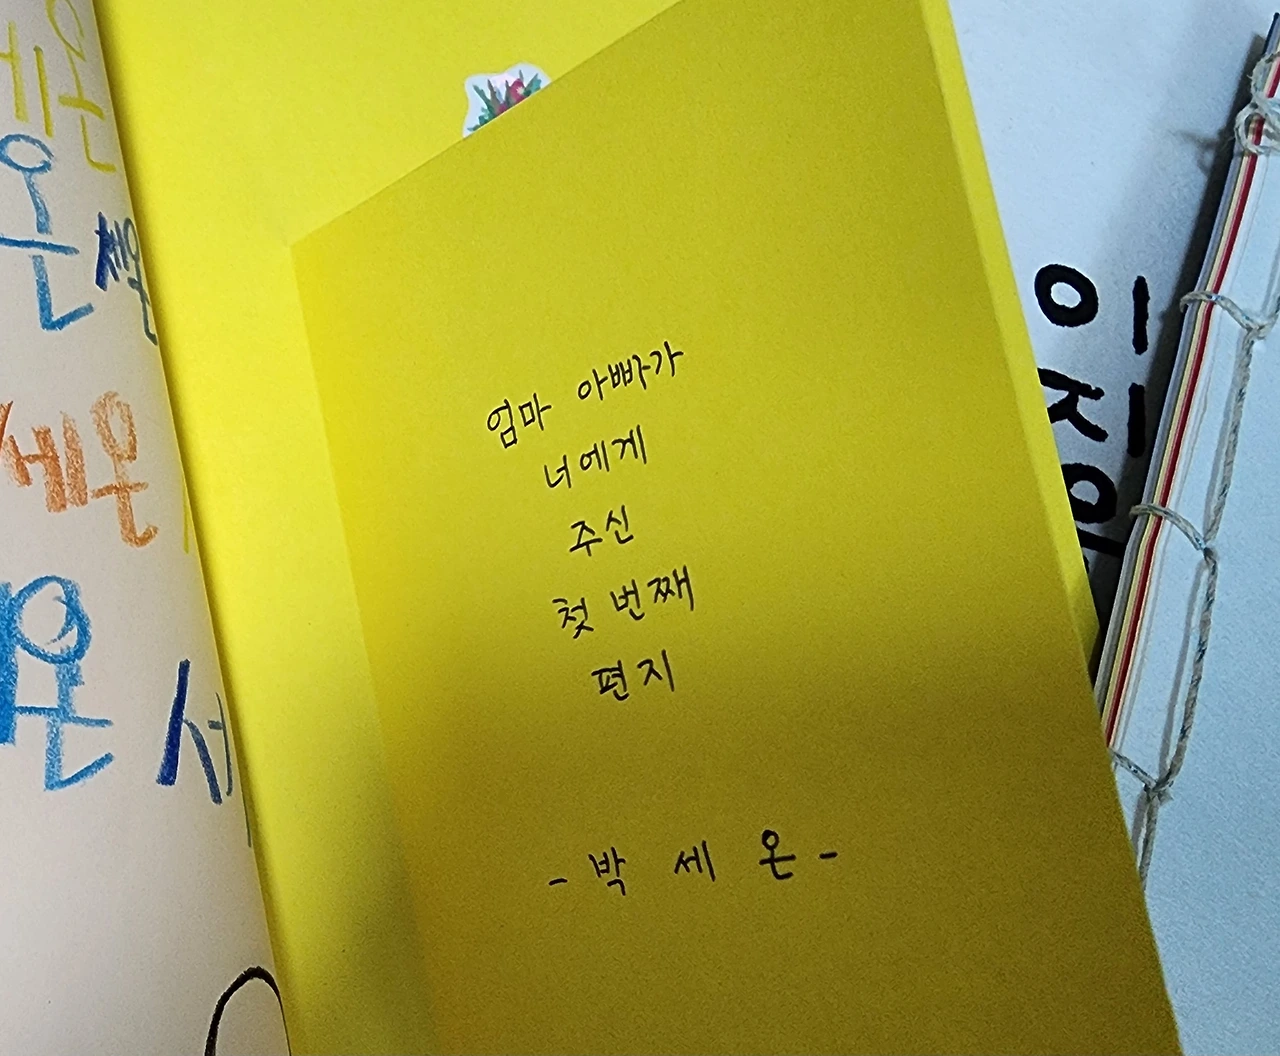 세온
온
세온
세온
온
서
엄마 아빠가
너에게
주신
첫 번째
편지
- 박 세 온 -
이지